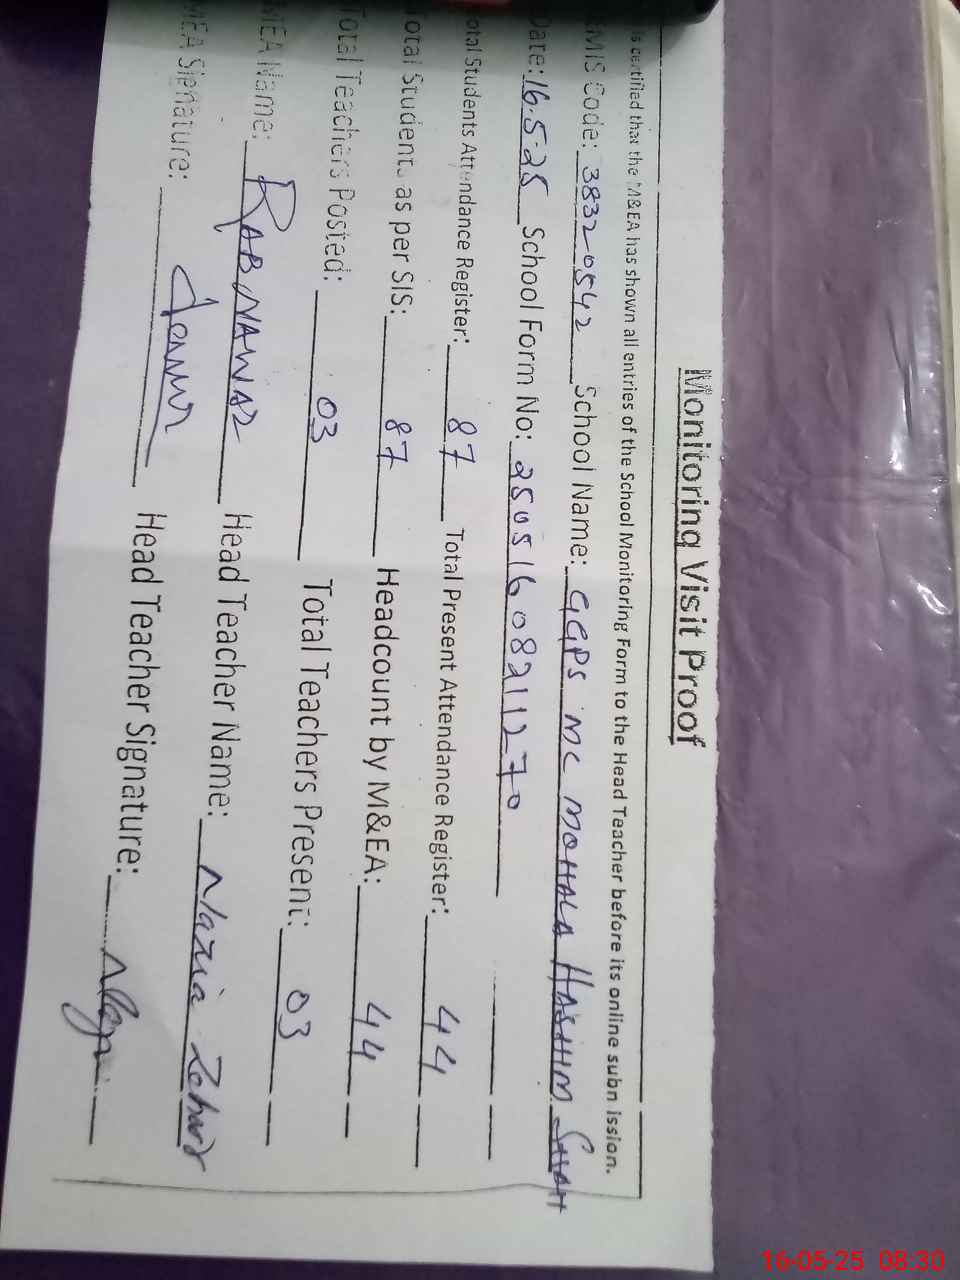 Monitoring Visit Proof
is certified that the M&EA has shown all entries of the School Monitoring Form to the Head Teacher before its online subn ission.
EMIS Code: 38320542 School Name: GGPS MC MOHALA HASHIM SHAH
Date: 16.5.25 School Form No: 25051608211270
otal Students Attendance Register: 87 Total Present Attendance Register: 44
Total Students as per SIS: 87 Headcount by M&EA: 44
Total Teachers Posted: 03 Total Teachers Present: 03
MEA Name: RAB NAWAZ Head Teacher Name: Nazia Zehra
MEA Signature: Head Teacher Signature:
16-05-25 08:30